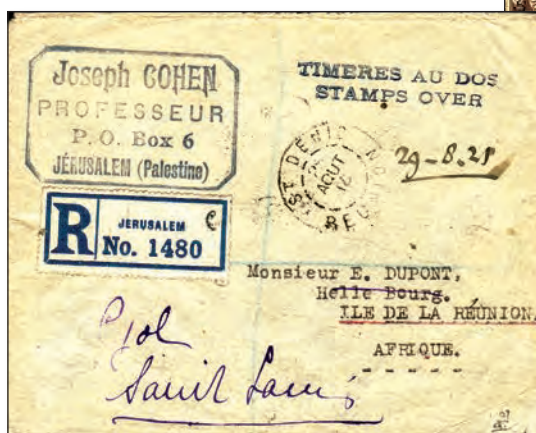 Joseph COHEN
PROFESSEUR
P. O. Box 6
JÉRUSALEM (Palestine)
TIMERES AU DOS
STAMPS OVER
ST DENIS
AOUT
REUNION
29-8.25
R
JERUSALEM
No. 1480
Monsieur E. DUPONT,
Helle Bourg.
ILE DE LA RÉUNION,
AFRIQUE.
- - - - -
Saint